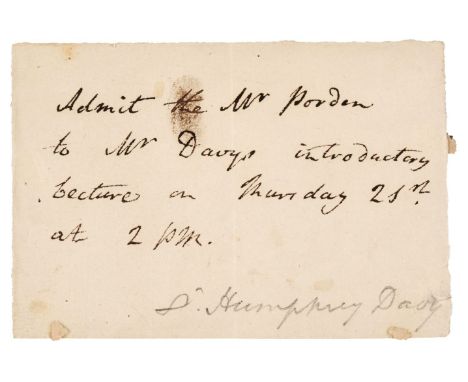 Admit the Mr Porden
to Mr Davys introductory
Lecture on Thursday 21st
at 2 PM.
Sr. Humphrey Davy